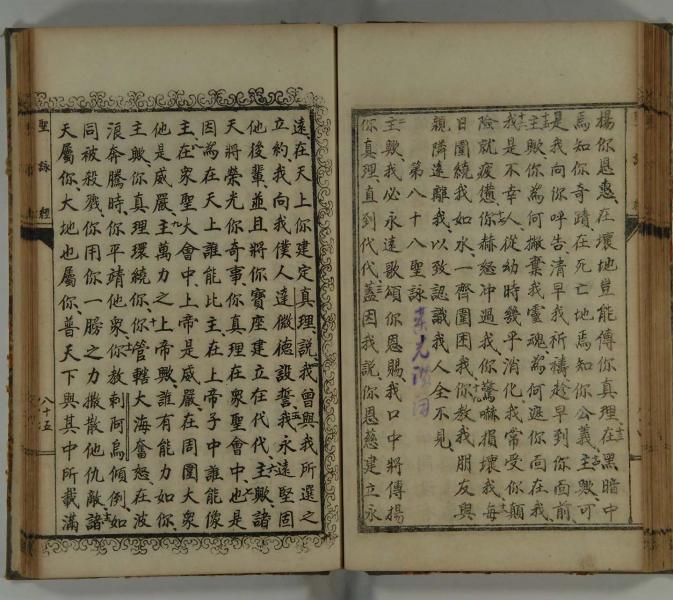 揚你恩惠在壞地豈能傳你真理在黑暗中
焉知你奇蹟在死亡地焉知你公義主歟可
是我向你呼告清早我祈禱趁早到你面前
主歟你為何撇棄我靈魂為何遮你面在我
我是不幸人從幼時幾乎消化我常受你顛
險就疲憊你赫怒冲過我你驚嚇損壞我每
日圍繞我如水一齊圍困我你教我朋友與
親隣遠離我以致認識我人全不見
第八十八聖詠
主歟我必永遠歌頌你恩賜我口中將傳揚
你真理直到代代蓋因我說你恩慈建立永
遠在天上你建定真理說我曾與我所選之
立約我向我僕人達微德設誓我永遠堅固
他後輩並且將你寶座建立在代代主歟諸
天將榮光你奇事你真理在衆聖會中也是
因為在天上誰能比主在上帝子中誰能像
主在衆聖大會中上帝是威嚴在周圍大衆
他是威嚴主萬力之上帝歟誰有能力如你
主歟你真理環繞你你管轄大海奮怒在波
浪奔騰時你平靖他衆你敖剌阿烏傾倒如
同被殺戮你用你一膀之力撒散他仇敵諸
天屬你大地也屬你普天下與其中所載滿
聖詠經
八十五